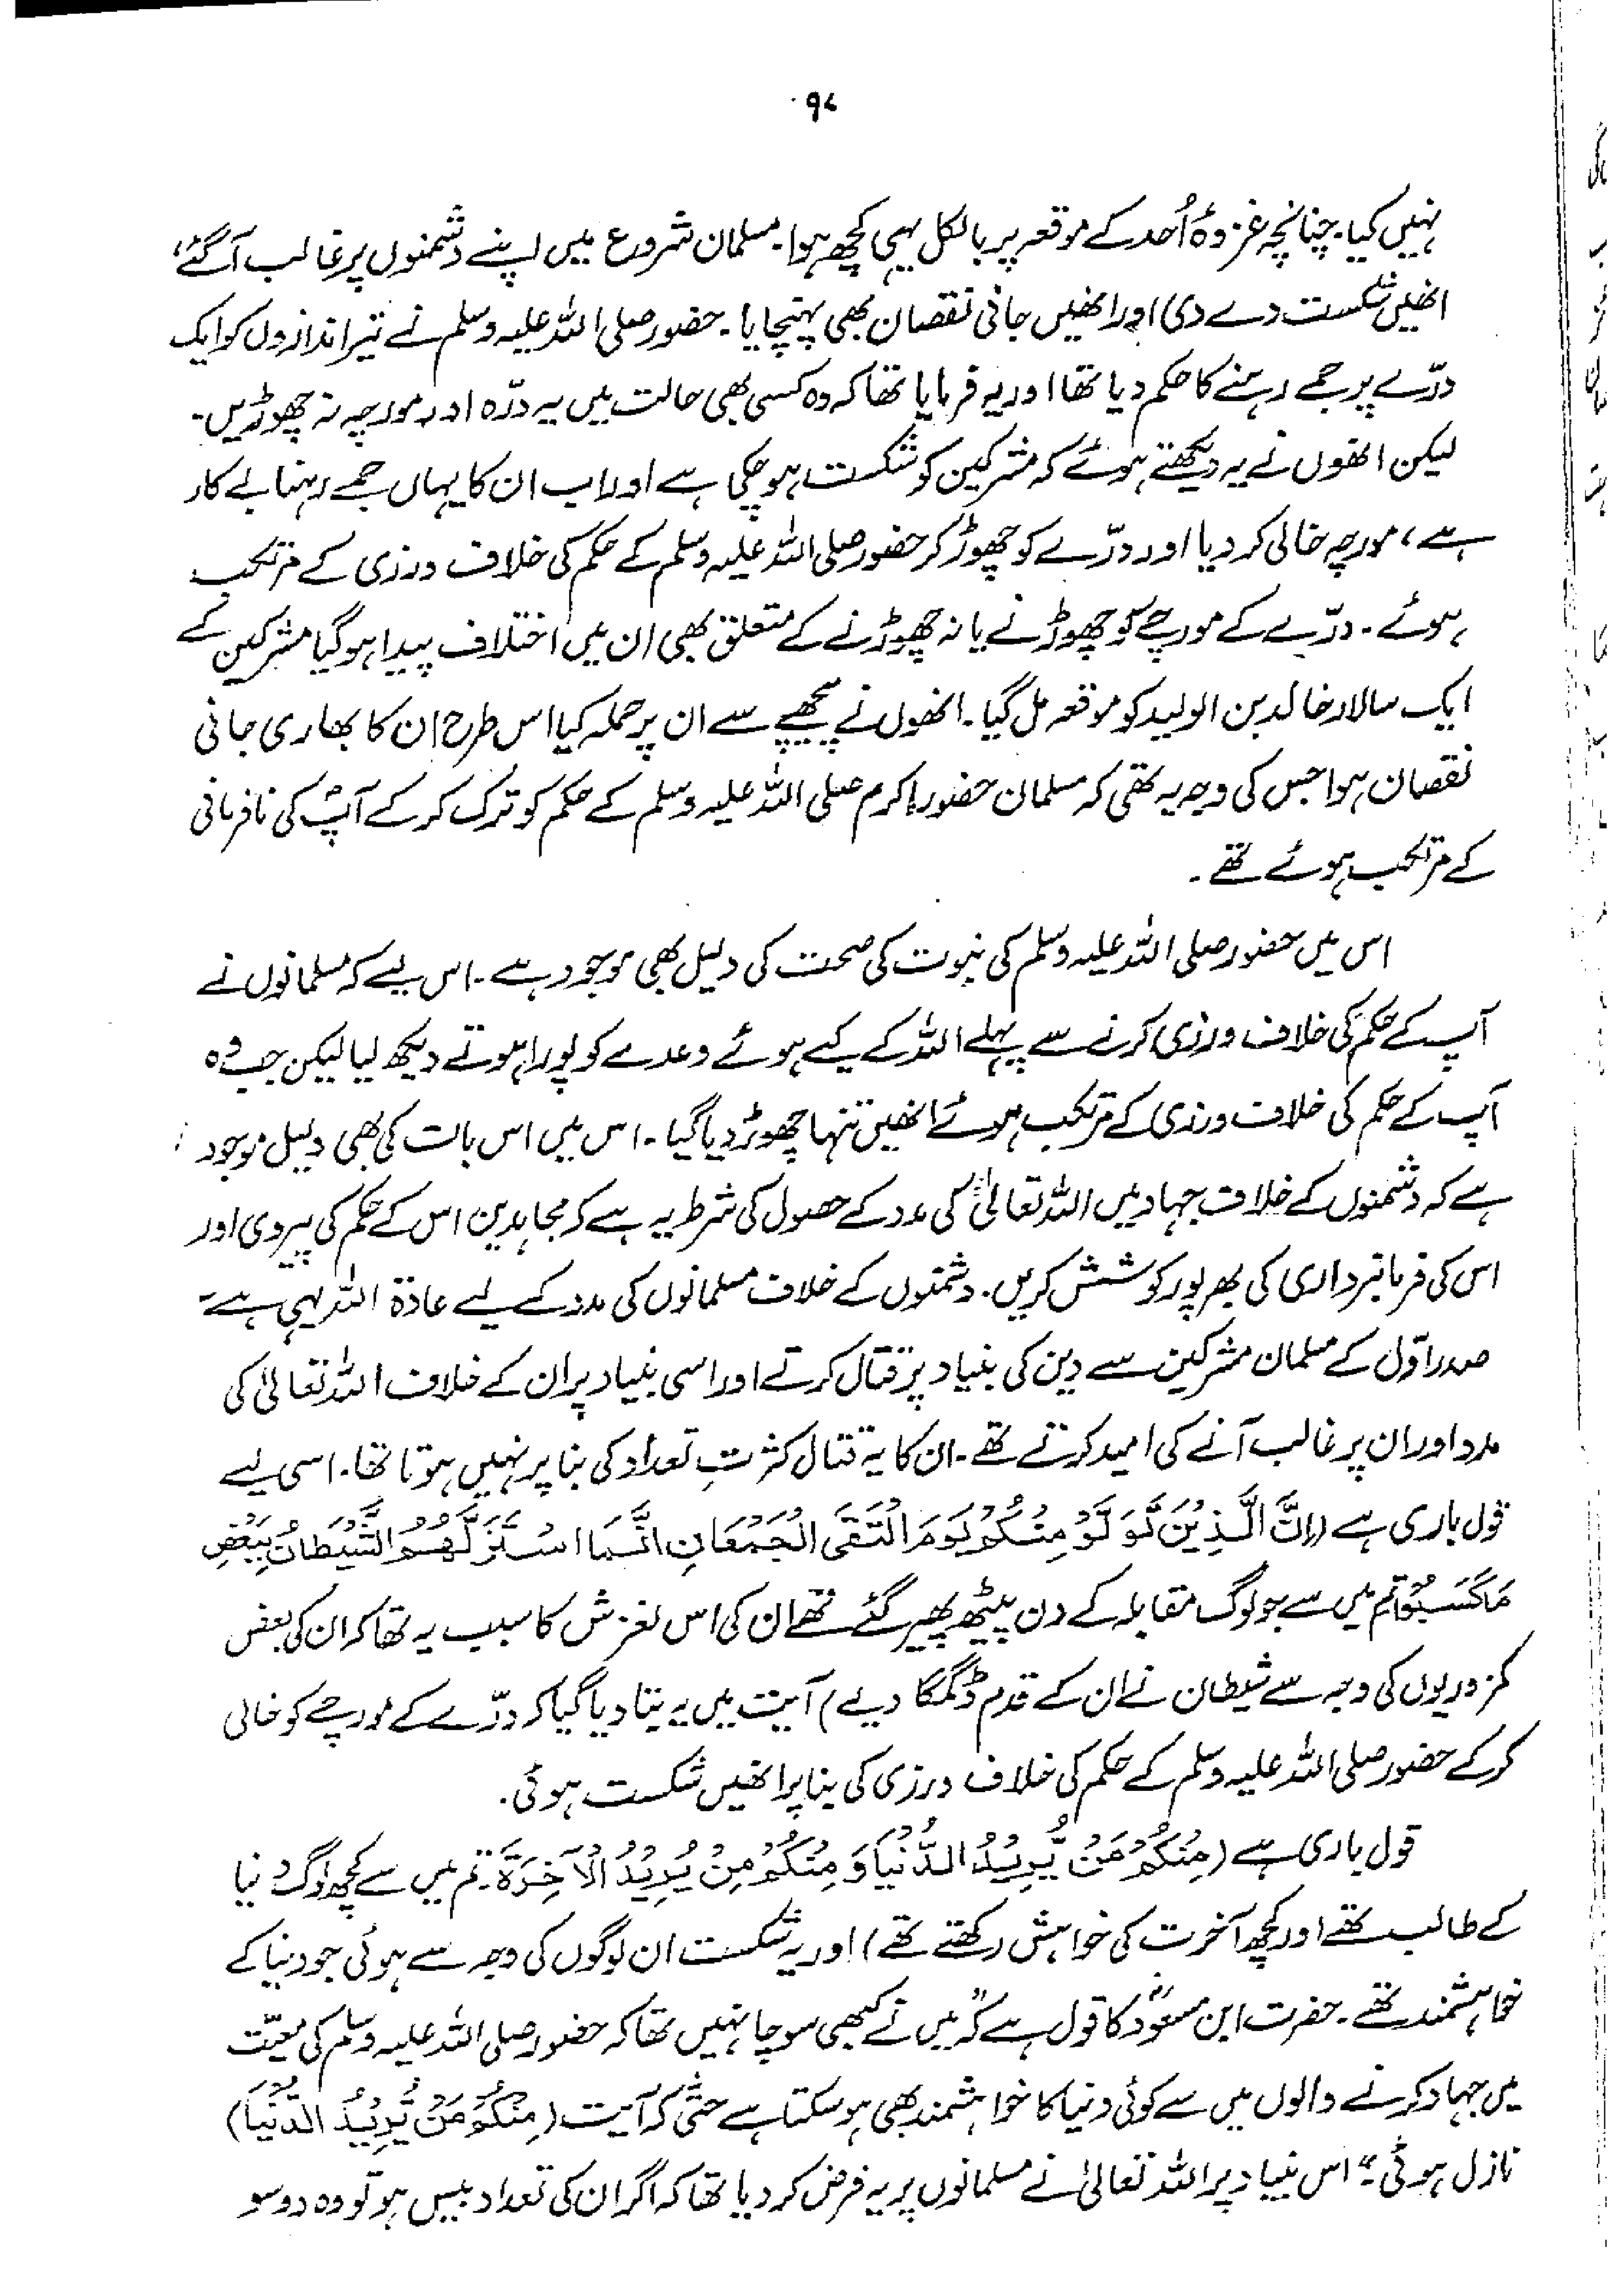 ۹۷
نہیں کیا۔ چنانچہ غزوۂ اُحد کے موقعہ پر بالکل یہی کچھ ہوا۔ مسلمان شروع میں اپنے دشمنوں پر غالب آگئے،
انھیں شکست دے دی اور انھیں جانی نقصان بھی پہنچایا۔ حضور صلی اللہ علیہ وسلم نے تیر اندازوں کو ایک
درّے پر جمے رہنے کا حکم دیا تھا اور یہ فرمایا تھا کہ وہ کسی بھی حالت میں یہ درّہ اور مورچہ نہ چھوڑیں۔
لیکن انھوں نے یہ دیکھتے ہوئے کہ مشرکین کو شکست ہو چکی ہے اور اب ان کا یہاں جمے رہنا بے کار
ہے، مورچہ خالی کر دیا اور درّے کو چھوڑ کر حضور صلی اللہ علیہ وسلم کے حکم کی خلاف ورزی کے مرتکب
ہوئے۔ درّے کے مورچے کو چھوڑنے یا نہ چھوڑنے کے متعلق بھی ان میں اختلاف پیدا ہو گیا مشرکین کے
ایک سالار خالد بن الولید کو موقعہ مل گیا۔ انھوں نے پیچھے سے ان پر حملہ کیا اس طرح ان کا بھاری جانی
نقصان ہوا جس کی وجہ یہ تھی کہ مسلمان حضور اکرم صلی اللہ علیہ وسلم کے حکم کو ترک کر کے آپؐ کی نافرمانی
کے مرتکب ہوئے تھے۔
اس میں حضور صلی اللہ علیہ وسلم کی نبوت کی صحت کی دلیل بھی موجود ہے۔ اس لیے کہ مسلمانوں نے
آپ کے حکم کی خلاف ورزی کرنے سے پہلے اللہ کے کیے ہوئے وعدے کو پورا ہوتے دیکھ لیا لیکن جب وہ
آپ کے حکم کی خلاف ورزی کے مرتکب ہوئے انھیں تنہا چھوڑ دیا گیا۔ اس میں اس بات کی بھی دلیل موجود
ہے کہ دشمنوں کے خلاف جہاد میں اللہ تعالیٰ کی مدد کے حصول کی شرط یہ ہے کہ مجاہدین اس کے حکم کی پیروی اور
اس کی فرمانبرداری کی بھرپور کوشش کریں۔ دشمنوں کے خلاف مسلمانوں کی مدد کے لیے عادۃ اللہ یہی ہے۔
صدر اوّل کے مسلمان مشرکین سے دین کی بنیاد پر قتال کرتے اور اسی بنیاد پر ان کے خلاف اللہ تعالیٰ کی
مدد اور ان پر غالب آنے کی امید کرتے تھے۔ ان کا یہ قتال کثرتِ تعداد کی بنا پر نہیں ہوتا تھا۔ اسی لیے
قول باری ہے (اِنَّ الَّذِیْنَ تَوَلَّوْ مِنْکُمْ یَوْمَ الْتَقَی الْجَمْعَانِ اِنَّمَا اسْتَزَلَّھُمُ الشَّیْطَانُ بِبَعْضِ
مَا کَسَبُوْا تم میں سے جو لوگ مقابلہ کے دن پیٹھ پھیر گئے تھے ان کی اس لغزش کا سبب یہ تھا کہ ان کی بعض
کمزوریوں کی وجہ سے شیطان نے ان کے قدم ڈگمگا دیے) آیت میں یہ بتا دیا گیا کہ درّے کے مورچے کو خالی
کر کے حضور صلی اللہ علیہ وسلم کے حکم کی خلاف ورزی کی بنا پر انھیں شکست ہوئی۔
قول باری ہے (مِنْکُمْ مَنْ یُّرِیْدُ الدُّنْیَا وَ مِنْکُمْ مِنْ یُرِیْدُ الْاٰخِرَۃَ تم میں سے کچھ لوگ دنیا
کے طالب تھے اور کچھ آخرت کی خواہش رکھتے تھے) اور یہ شکست ان لوگوں کی وجہ سے ہوئی جو دنیا کے
خواہشمند تھے۔ حضرت ابن مسعودؓ کا قول ہے کہ "میں نے کبھی سوچا نہیں تھا کہ حضور صلی اللہ علیہ وسلم کی معیّت
میں جہاد کرنے والوں میں سے کوئی دنیا کا خواہشمند بھی ہو سکتا ہے حتّٰی کہ آیت (مِنْکُمْ مَنْ یُّرِیْدُ الدُّنْیَا)
نازل ہوئی"۔ اس بنیاد پر اللہ تعالیٰ نے مسلمانوں پر یہ فرض کر دیا تھا کہ اگر ان کی تعداد بیس ہو تو وہ دو سو